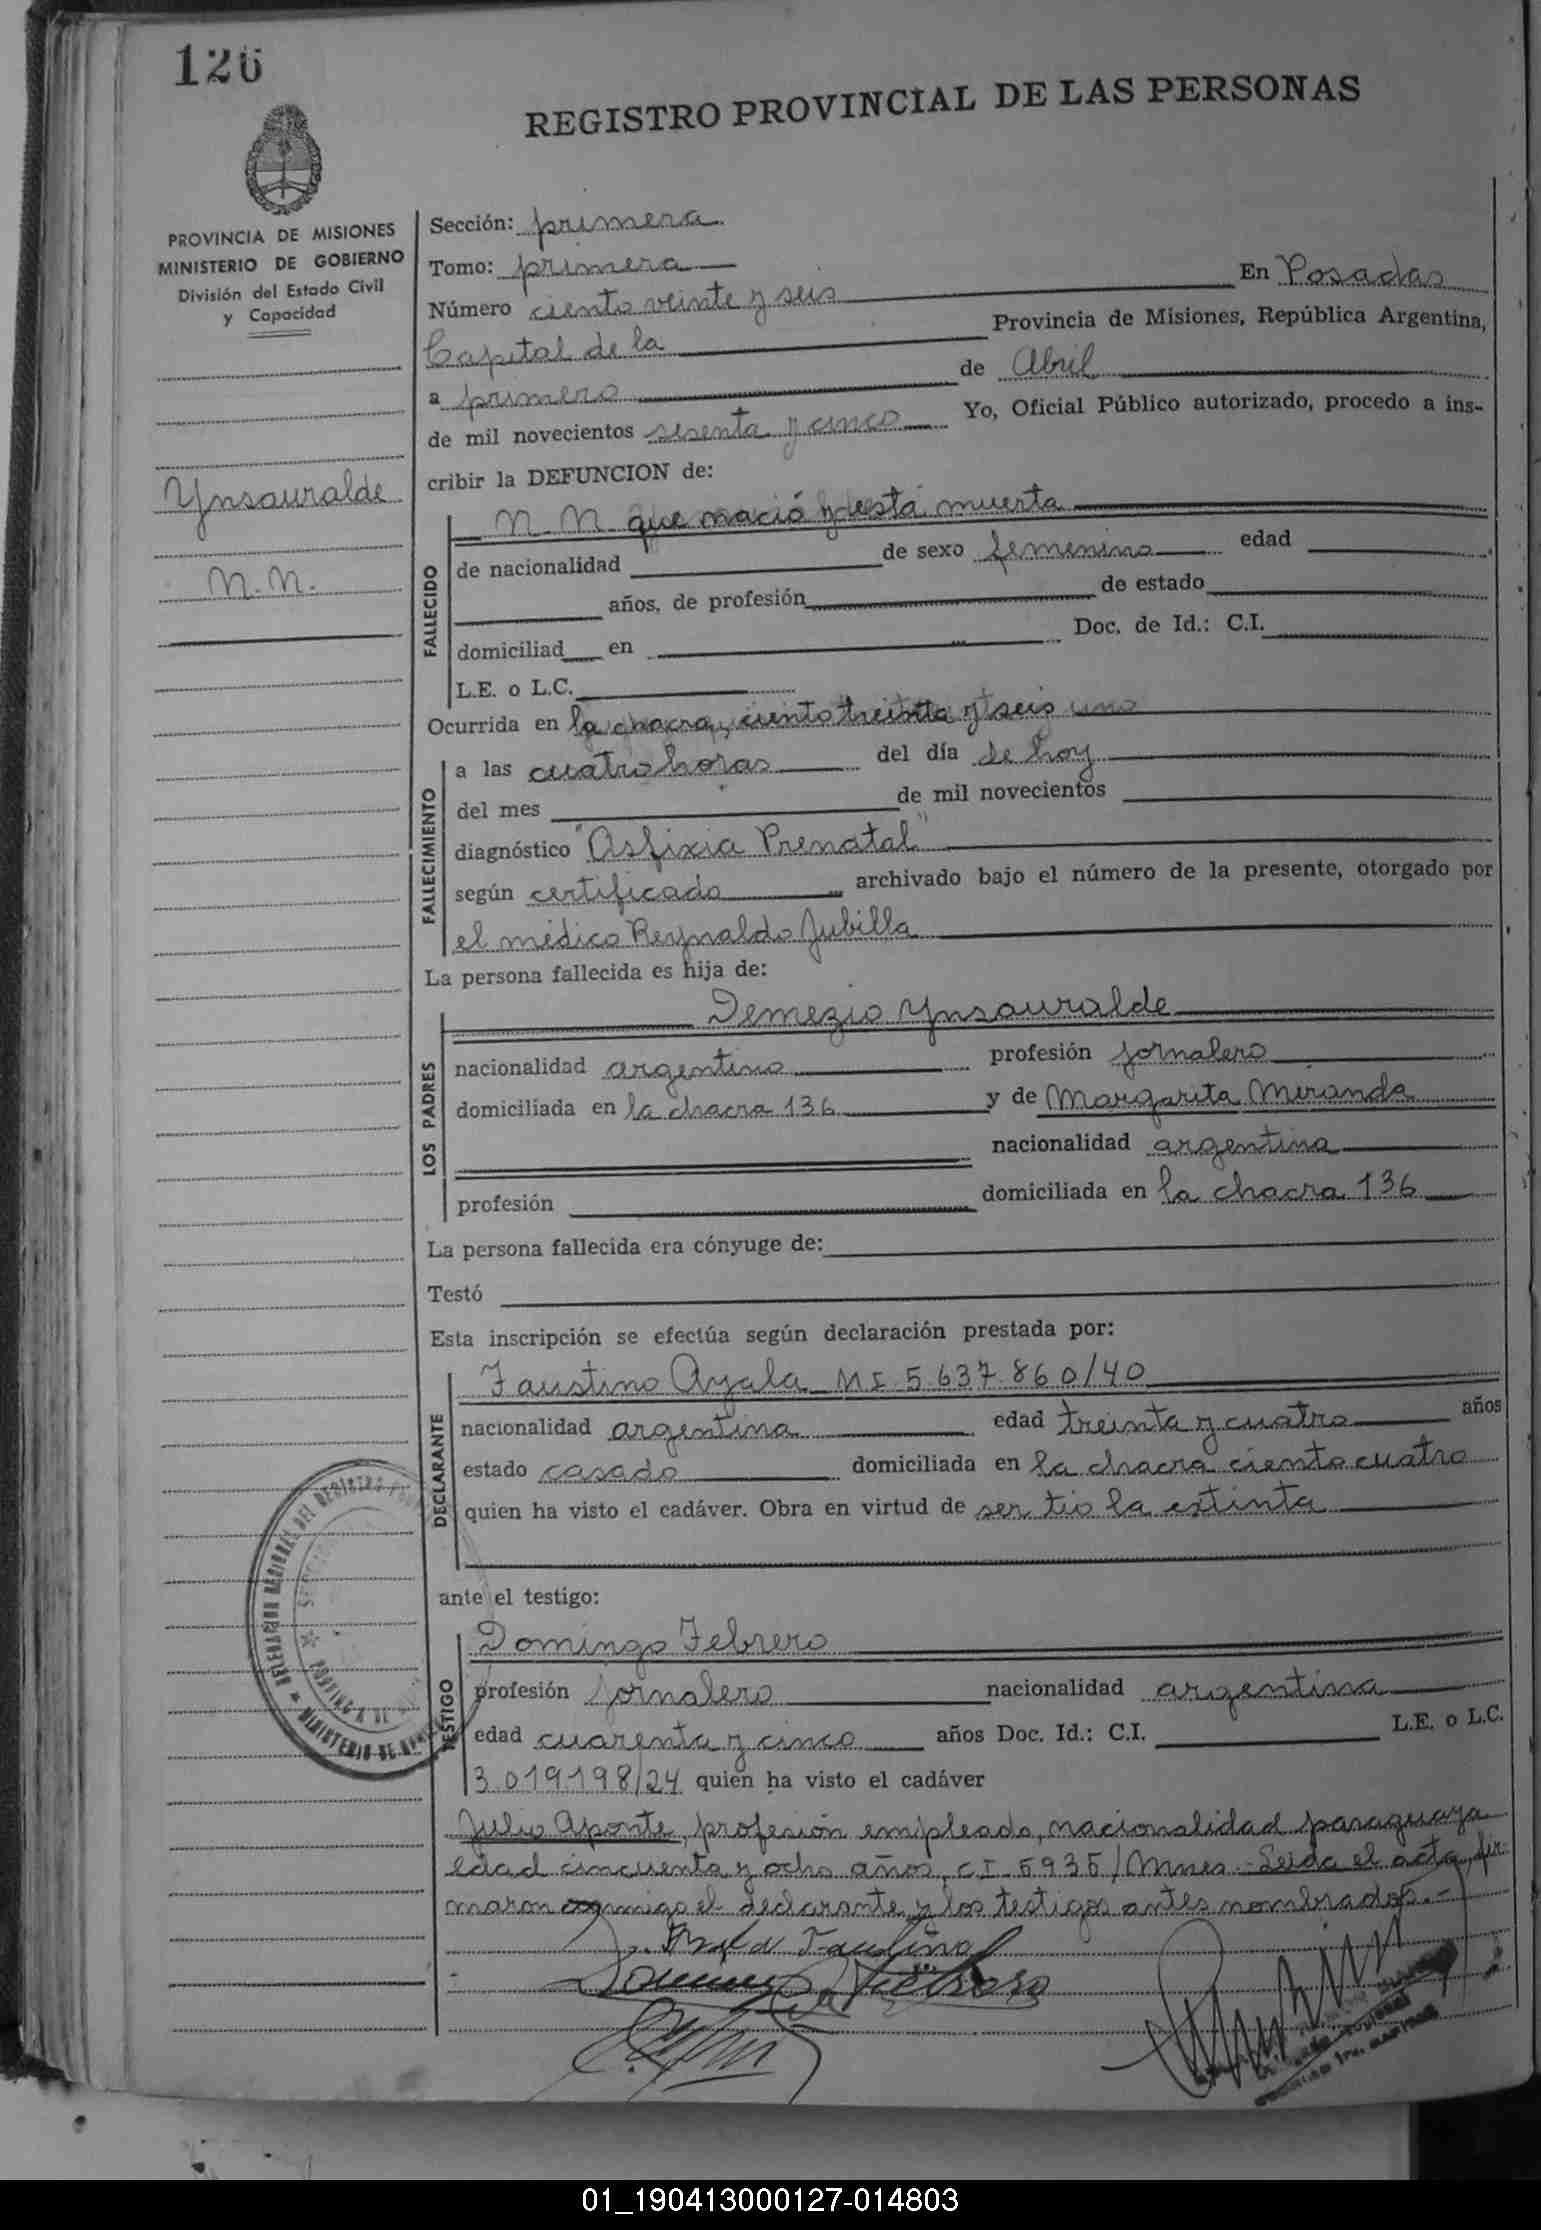 126
REGISTRO PROVINCIAL DE LAS PERSONAS
PROVINCIA DE MISIONES
MINISTERIO DE GOBIERNO
División del Estado Civil
y Capacidad
Ynsauralde
N.N.
Sección: primera
Tomo: primera
Número ciento veinte y seis En Posadas
Capital de la Provincia de Misiones, República Argentina,
a primero de Abril
de mil novecientos sesenta y cinco Yo, Oficial Público autorizado, procedo a ins-
cribir la DEFUNCION de:
FALLECIDO
N.N. que nació y está muerta
de nacionalidad de sexo femenino edad
años, de profesión de estado
domiciliad en Doc. de Id.: C.I.
L.E. o L.C.
Ocurrida en la chacra, ciento treinta y seis
FALLECIMIENTO
a las cuatro horas del día de hoy
del mes de mil novecientos
diagnóstico "Asfixia Prenatal"
según certificado archivado bajo el número de la presente, otorgado por
el médico Reynaldo Jubilla
La persona fallecida es hija de:
LOS PADRES
Demezio Ynsauralde
nacionalidad argentino profesión jornalero
domiciliada en la chacra 136 y de Margarita Miranda
nacionalidad argentina
profesión domiciliada en la chacra 136
La persona fallecida era cónyuge de:
Testó
Esta inscripción se efectúa según declaración prestada por:
DECLARANTE
Faustino Ayala M I 5.637.860/40
nacionalidad argentina edad treinta y cuatro años
estado casado domiciliada en la chacra ciento cuatro
quien ha visto el cadáver. Obra en virtud de ser tio la extinta
ante el testigo:
TESTIGO
Domingo Febrero
profesión jornalero nacionalidad argentina
edad cuarenta y cinco años Doc. Id.: C.I. L.E. o L.C.
3.019.198/24 quien ha visto el cadáver
Julio Aponte, profesión empleado, nacionalidad paraguaya
edad cincuenta y ocho años, C.I. 5935/Mnes - Leida el acta, fir-
maron conmigo el declarante y los testigos antes nombrados.-
01_190413000127-014803